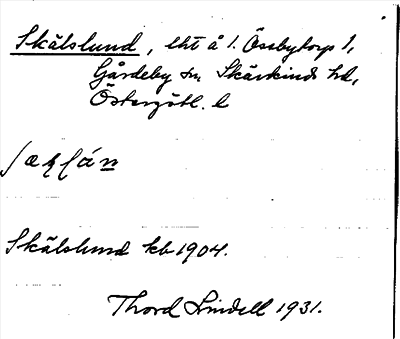 Skälslund, lht å 1. Össbytorp 1,
Gårdeby sn, Skärkinds hd,
Östergötl. l
Skälslund kb 1904.
Thord Lindell 1931.